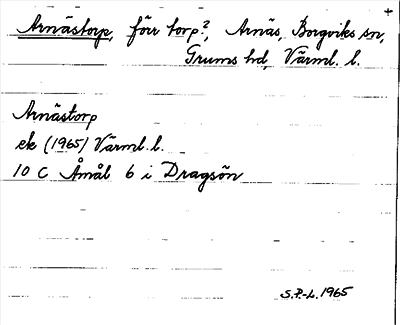 Arnästorp, förr torp?, Arnäs, Borgviks sn,
Grums hd, Värml. l.
Arnästorp
ek (1965) Värml. l.
10 C Åmål 6 i Dragsön
S.P.-L. 1965